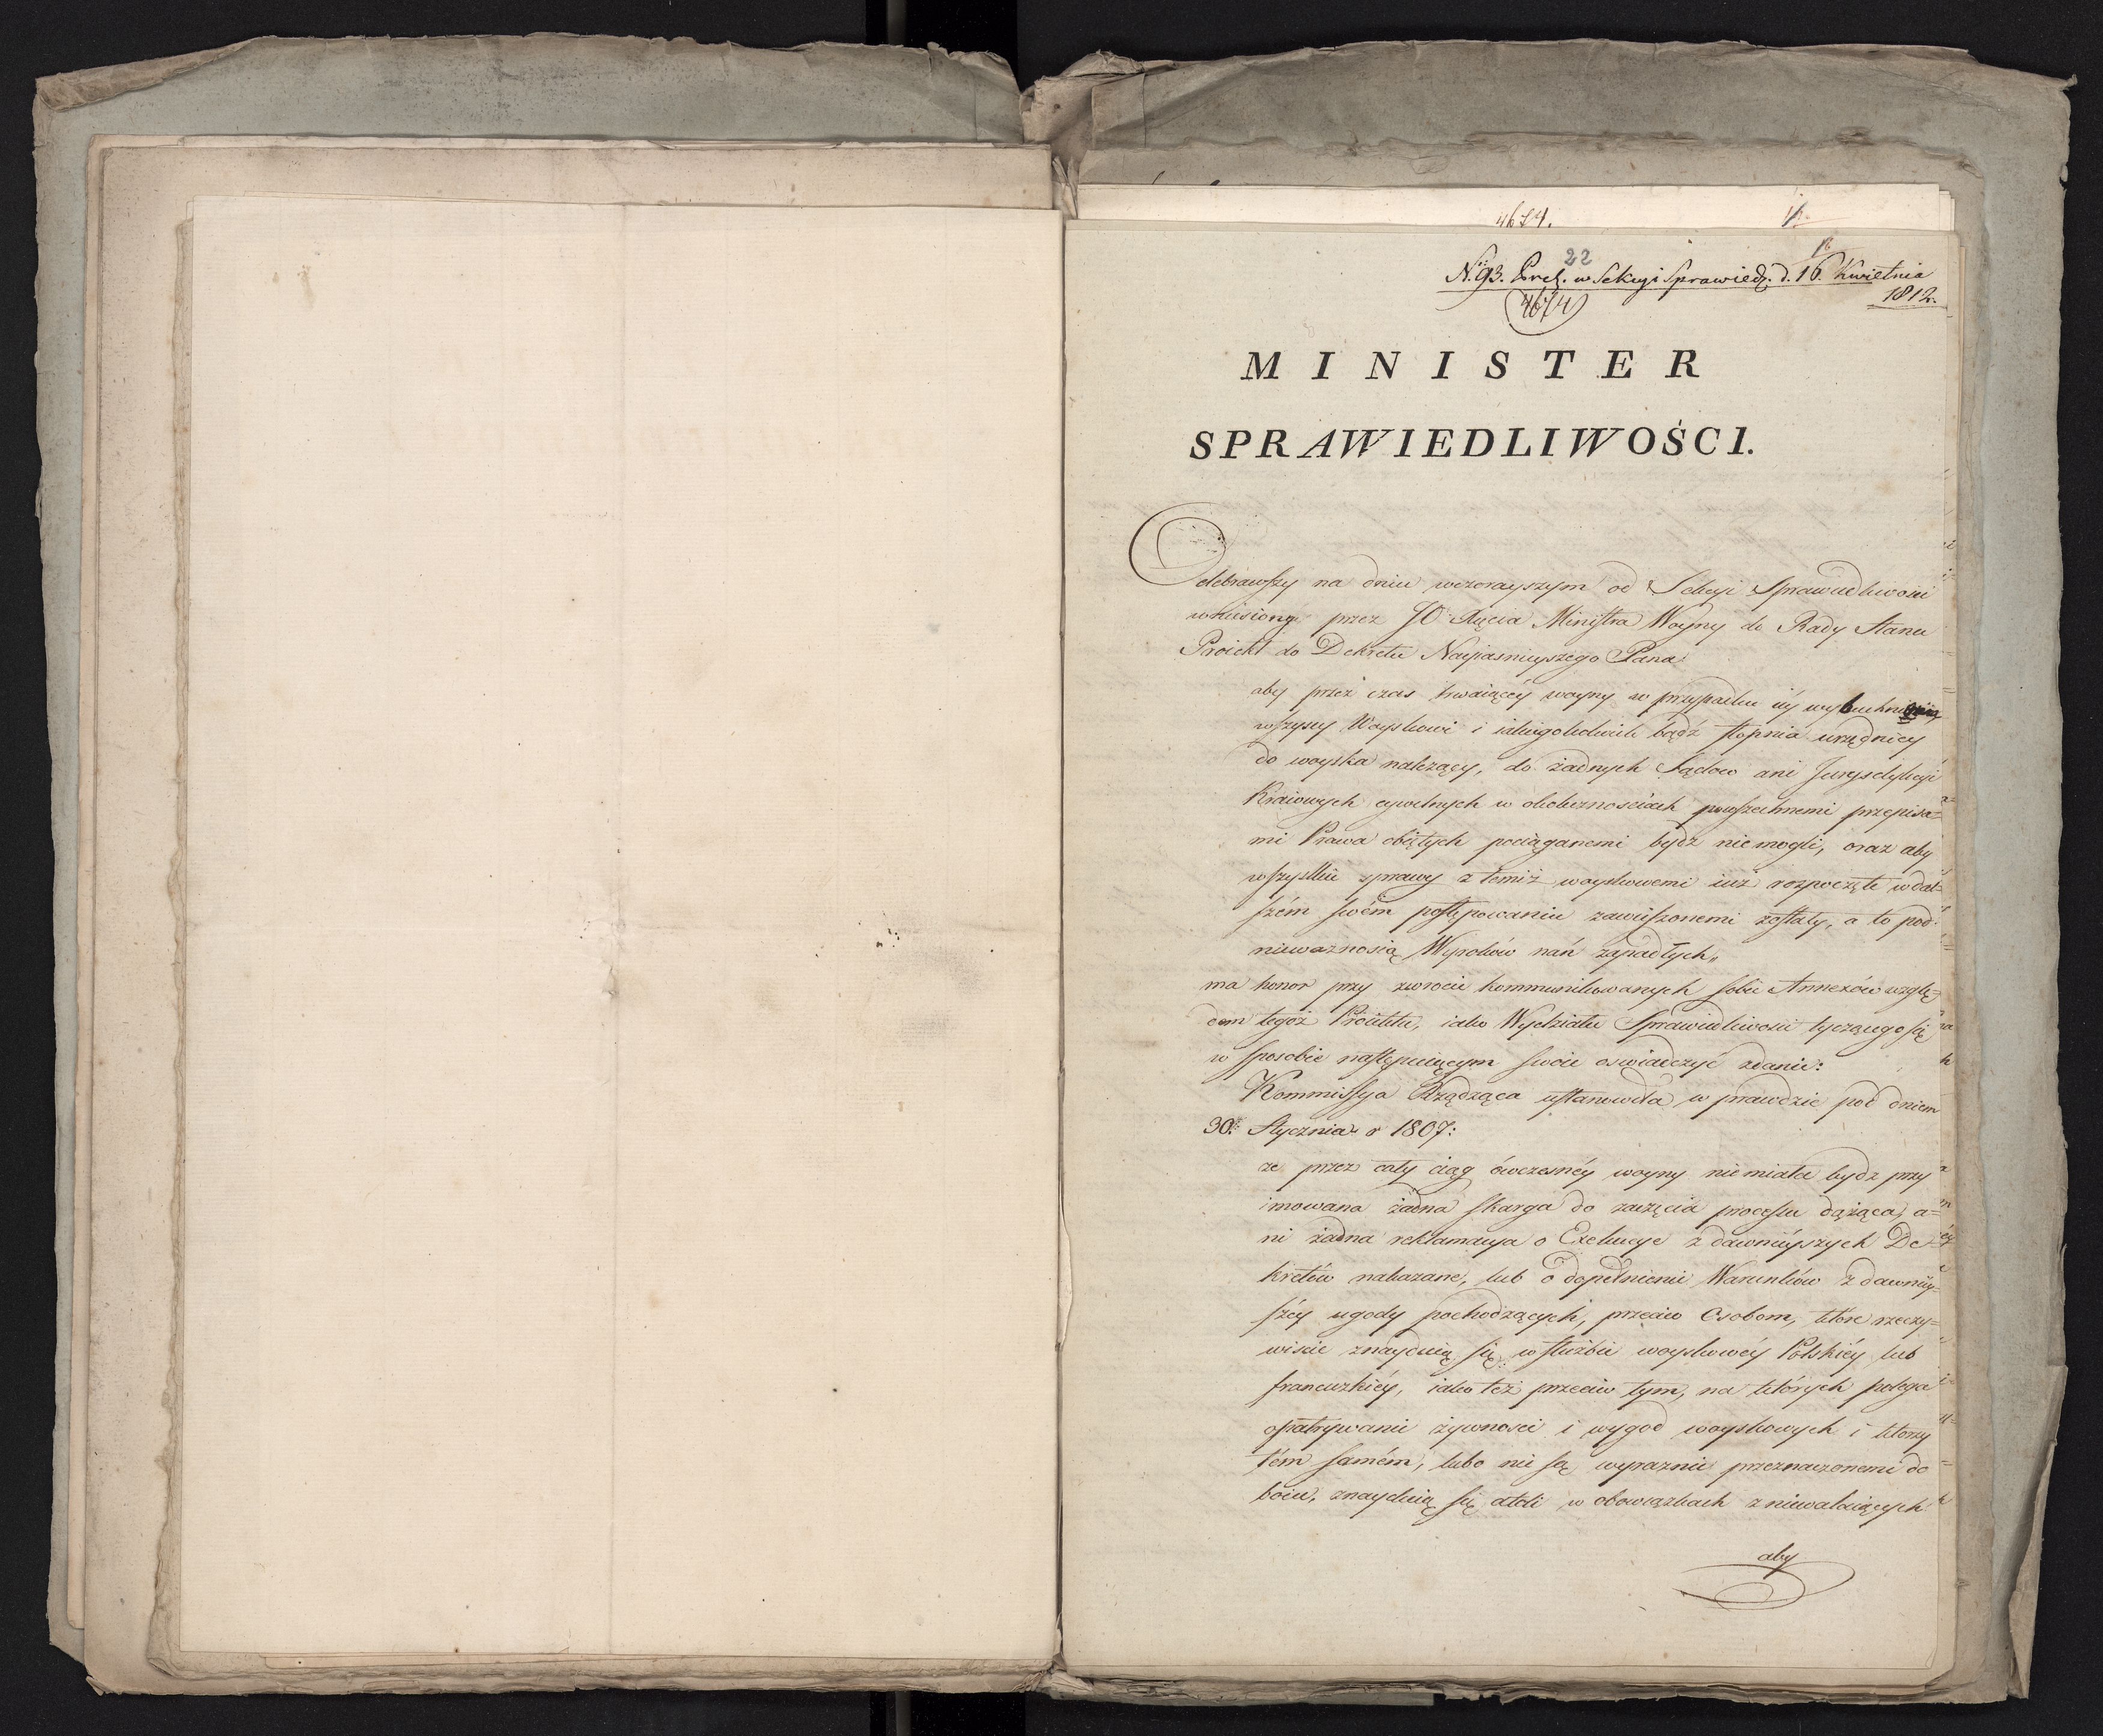 4674.
22
N. 93. Prez. w Sekcyi Sprawiedz. d. 16. Kwietnia
1812.
4674
MINISTER
SPRAWIEDLIWOŚCI.
Odebrawszy na dniu wczorayszym od Sekcyi Sprawiedliwości
wniesiony przez JO Xięcia Ministra Woyny do Rady Stanu
Proiekt do Dekretu Nayiasnieyszego Pana
aby przez czas trwaiącéy woyny w przypadku iéy wybuchnienia
wszyscy Woyskowi i iakiegokolwiek bądź stopnia urzędnicy
do woyska należący, do żadnych Sądow ani Jurysdykcyi
Kraiowych cywilnych w okolicznościach powszechnemi przepisa=
mi Prawa obiętych pociąganemi bydź nie mogli, oraz aby
wszystkie sprawy z temiż woyskowemi iuż rozpoczęte w dal=
szém swém postępowaniu zawieszonemi zostały, a to pod
nieważnosią Wyroków nań zapadłych„
ma honor przy zwrocie kommunikowanych sobie Annexów wzglę=
dem tegoż Proiektu, iako Wydziału Sprawiedliwosci tyczącego się
w sposobie następuiącym swoie oswiadczyć zdanie:
Kommissya Rządząca ustanowiła w prawdzie pod dniem
30. Stycznia r 1807:
że przez cały ciąg ówczesnéy woyny nie miała bydz przy
imowana żadna skarga do zaczęcia processu dążąca, a=
ni żadna reklamacya o Exekucye z dawnieyszych De=
kretów nakazane, lub o dopełnienie Warunków z dawniey=
széy ugody pochodzących, przeciw Osobom, które rzeczy=
wiscie znayduią się w służbie woyskowéy Polskiéy lub
francuzkiéy, iako też przeciw tym, na których polega
opatrywanie żywnosci i wygod woyskowych i którzy
tém samém, lubo nie są wyraznie przeznaczonemi do
boiu, znayduią się atoli w obowiązkach zniewalaiących
aby